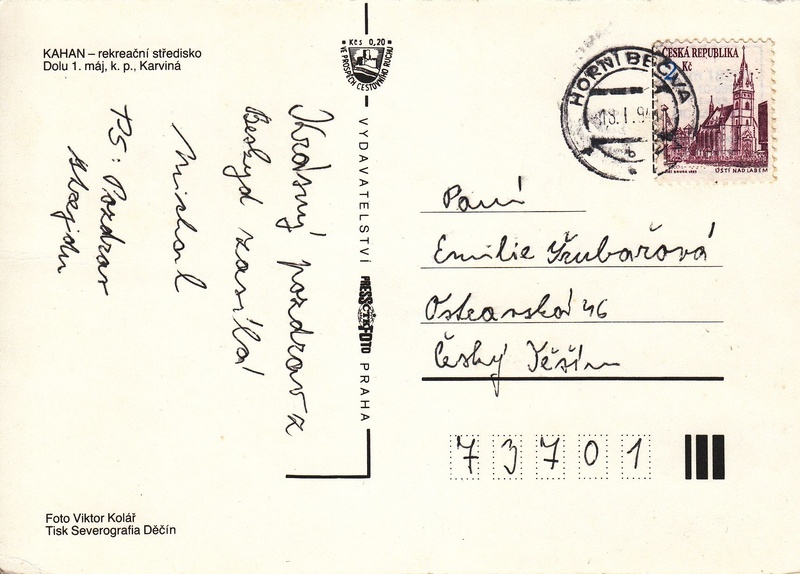 KAHAN – rekreační středisko
Dolu 1. máj, k. p., Karviná
Krásný pozdrav z
Beskyd zasílá
Michal
PS: Pozdrav
Kčs 0,20
VE PROSPĚCH CESTOVNÍHO RUCHU
VYDAVATELSTVÍ PRESSFOTO PRAHA
ČTK
HORNÍ BEČVA
18.1.94
ČESKÁ REPUBLIKA
Kč
ÚSTÍ NAD LABEM
Paní
Emilie
Ostravská 46
Český Těšín
73701
Foto Viktor Kolář
Tisk Severografia Děčín